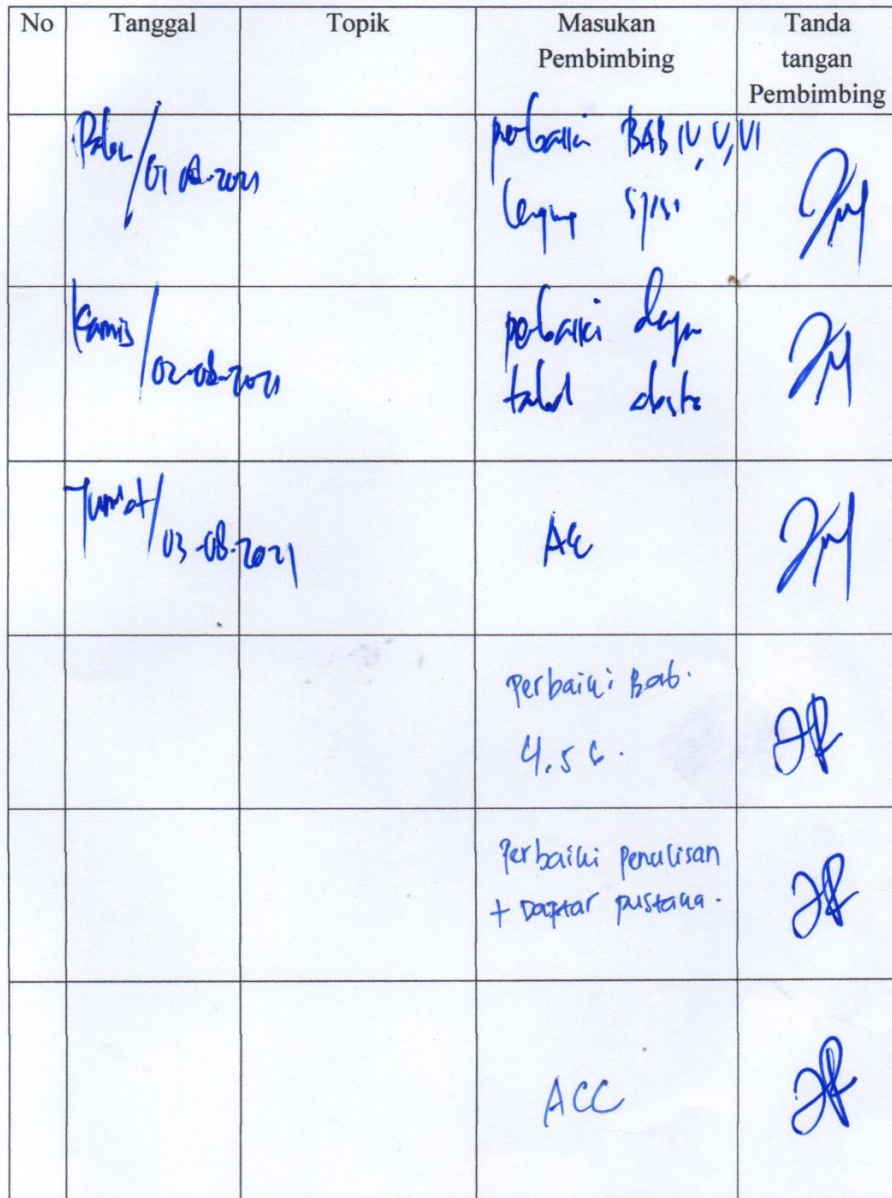 No Tanggal Topik Masukan Pembimbing Tanda tangan Pembimbing
Rabu/01-08-2021
perbaiki BAB IV, V, VI
Kamis/02-08-2021
perbaiki
tabel
Jum'at/03-08-2021
ACC
Perbaiki Bab.
4.5 6.
Perbaiki penulisan
+ Daptar pustaka.
ACC